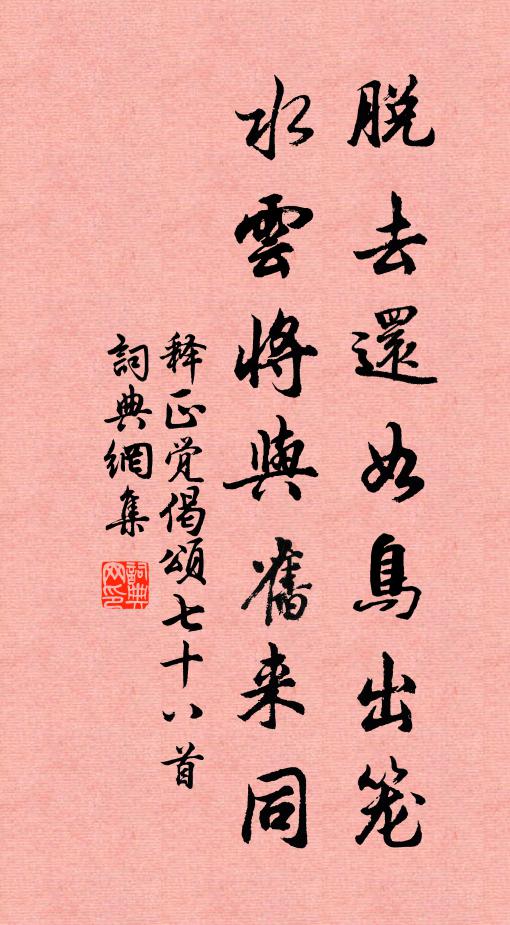 脱去還如鳥出笼
水雲將與舊来同
释正觉偈頌七十八首
詞典網集
詞典网印